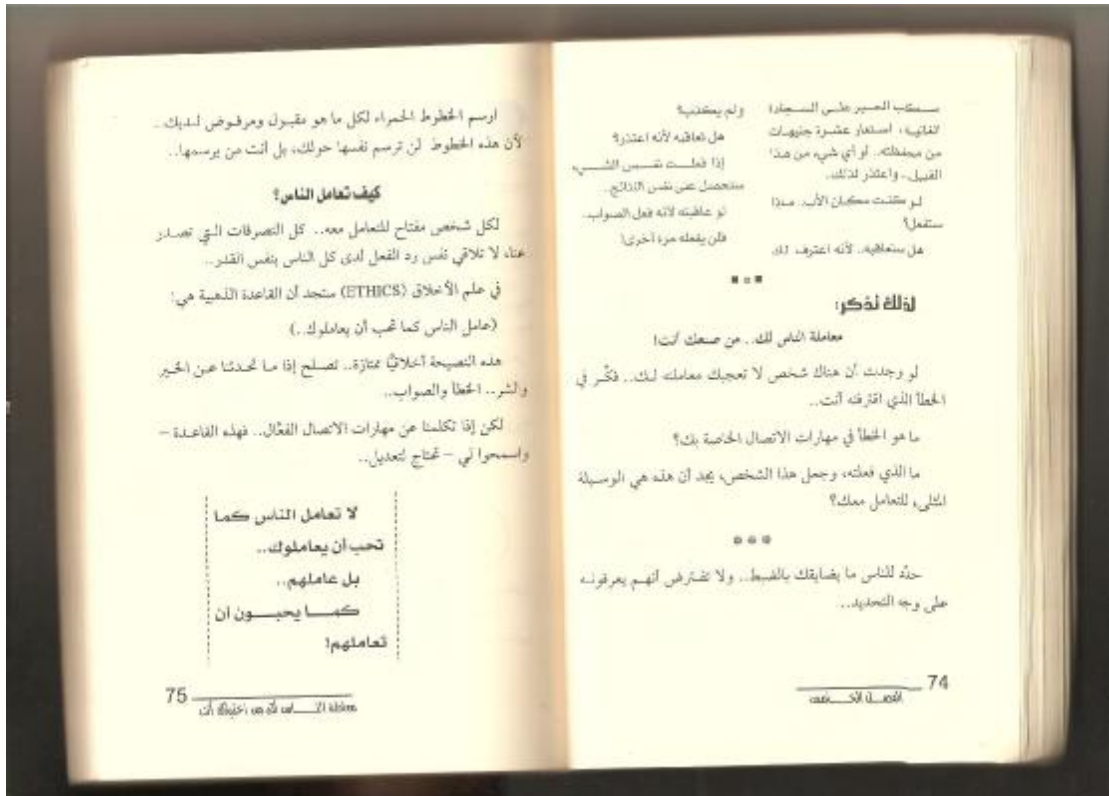 سكب الحبر على السجادة
الغالية، استعار عشرة جنيهات
من محفظته.. أو أي شيء من هذا
القبيل.. واعتذر لذلك.
لو كنت مكان الأب.. ماذا
ستفعل؟
هل ستعاقبه.. لأنه اعترف لك
ولم يكذب؟
هل تعاقبه لأنه اعتذر؟
إذا فعلت نفس الشيء،
ستحصل على نفس النتائج..
لو عاقبته لأنه فعل الصواب..
فلن يفعله مرة أخرى!
لذلك تذكر:
معاملة الناس لك.. من صنعك أنت!
لو وجدت أن هناك شخص لا تعجبك معاملته لك.. فكّر في
الخطأ الذي اقترفته أنت..
ما هو الخطأ في مهارات الاتصال الخاصة بك؟
ما الذي فعلته، وجعل هذا الشخص، يجد أن هذه هي الوسيلة
المثلى، للتعامل معك؟
حدّد للناس ما يضايقك بالضبط.. ولا تفترض أنهم يعرفونه
على وجه التحديد..
74
الفصل
ارسم الخطوط الحمراء لكل ما هو مقبول ومرفوض لديك..
لأن هذه الخطوط لن ترسم نفسها حولك، بل أنت من يرسمها..
كيف تعامل الناس؟
لكل شخص مفتاح للتعامل معه.. كل التصرفات التي تصدر
عنا، لا تلاقي نفس رد الفعل لدى كل الناس بنفس القدر..
في علم الأخلاق (ETHICS) ستجد أن القاعدة الذهبية هي:
(عامل الناس كما تحب أن يعاملوك..)
هذه النصيحة أخلاقيًّا ممتازة.. تصلح إذا ما تحدثنا عن الخير
والشر.. الخطأ والصواب..
لكن إذا تكلمنا عن مهارات الاتصال الفعَّال.. فهذه القاعدة –
واسمحوا لي – تحتاج لتعديل..
لا تعامل الناس كما
تحب أن يعاملوك..
بل عاملهم..
كما يحبون أن
تعاملهم!
75
معاملة الناس لك من